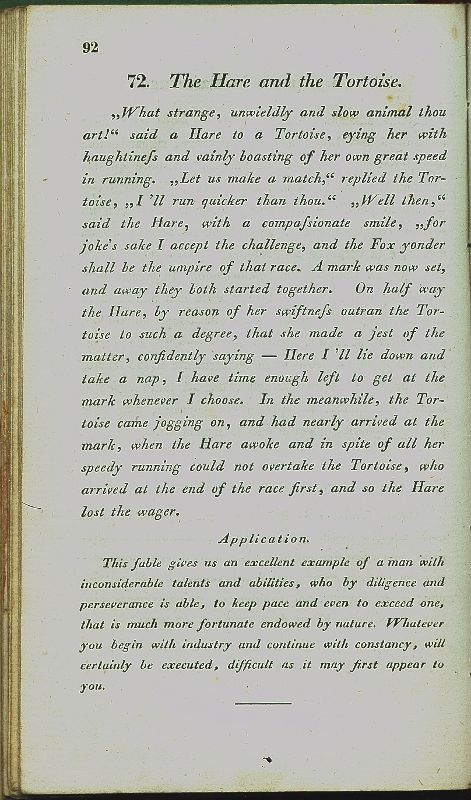 92
72. The Hare and the Tortoise.
„What strange, unwieldly and slow animal thou
art!“ said a Hare to a Tortoise, eying her with
haughtineſs and vainly boasting of her own great speed
in running. „Let us make a match,“ replied the Tor-
toise, „I 'll run quicker than thou.“ „Well then,“
said the Hare, with a compaſsionate smile, „for
joke's sake I accept the challenge, and the Fox yonder
shall be the umpire of that race. A mark was now set,
and away they both started together. On half way
the Hare, by reason of her swiftneſs outran the Tor-
toise to such a degree, that she made a jest of the
matter, confidently saying — Here I 'll lie down and
take a nap, I have time enough left to get at the
mark whenever I choose. In the meanwhile, the Tor-
toise came jogging on, and had nearly arrived at the
mark, when the Hare awoke and in spite of all her
speedy running could not overtake the Tortoise, who
arrived at the end of the race first, and so the Hare
lost the wager.
Application.
This fable gives us an excellent example of a man with
inconsiderable talents and abilities, who by diligence and
perseverance is able, to keep pace and even to exceed one,
that is much more fortunate endowed by nature. Whatever
you begin with industry and continue with constancy, will
certainly be executed, difficult as it may first appear to
you.